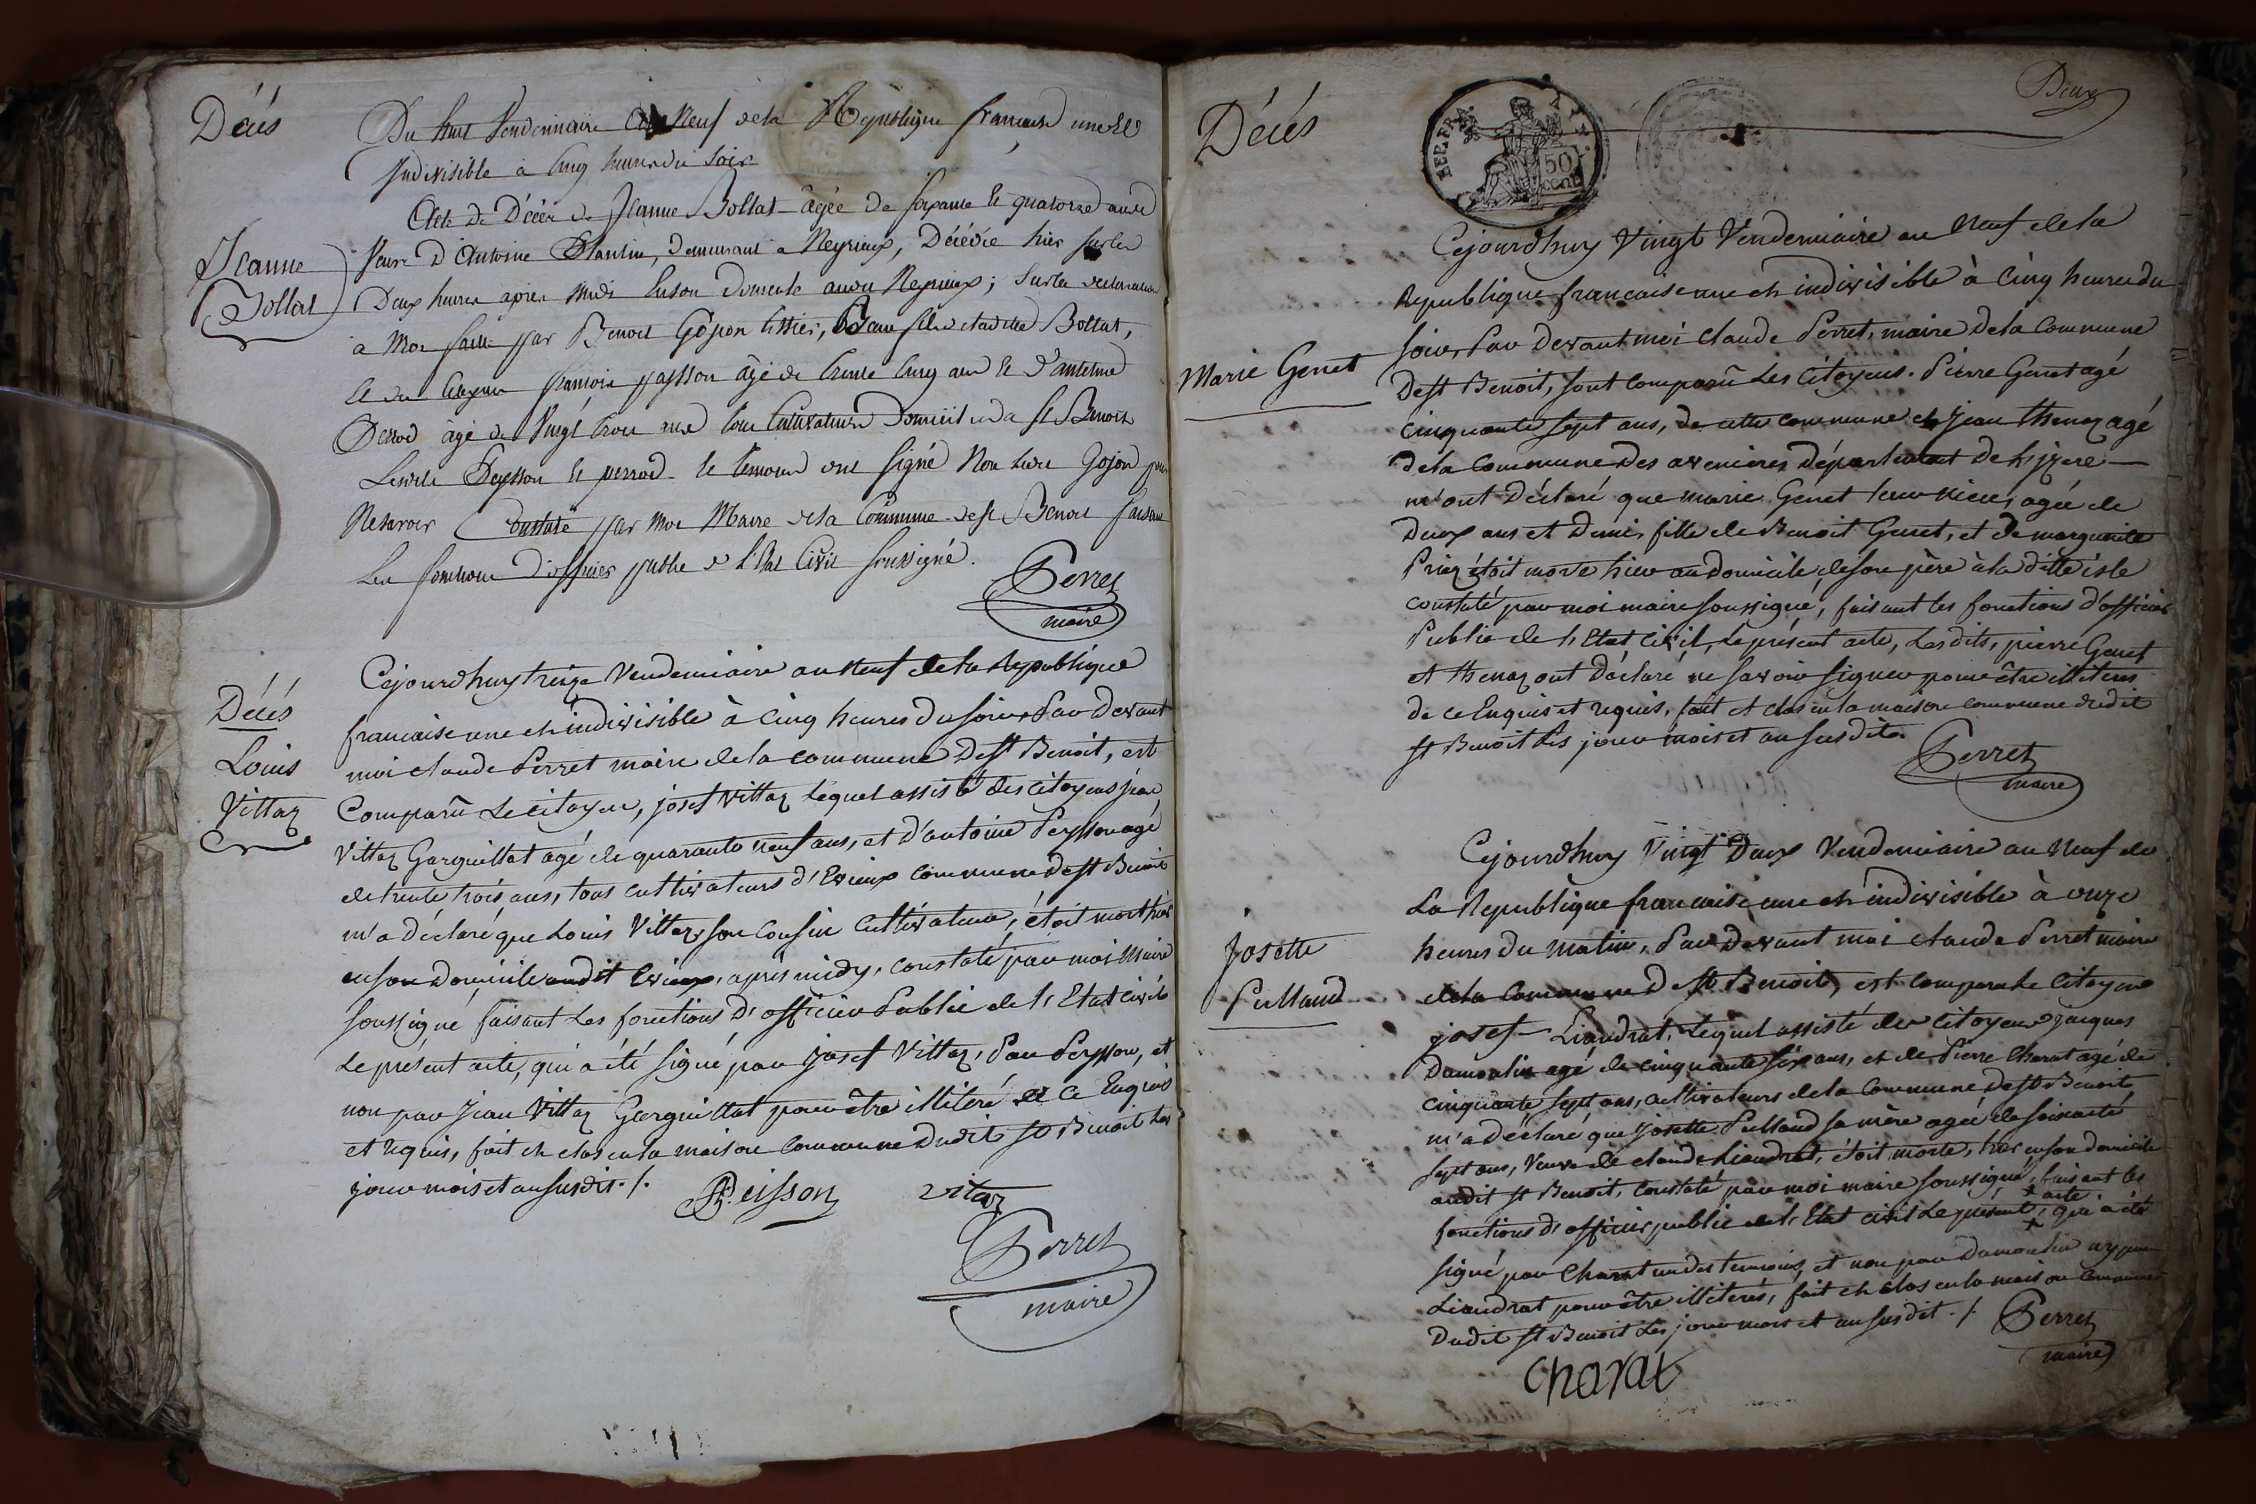 Décés
Du huit Vendemiaire An Neuf de la République francaise une et
Indivisible à Cinq heures du soir
Acte de Décés de Jeanne Bollat âgée de soixante et quatorze ans
Veuve D'Antoine Plantin, demeurant a Neyrieux, Décédée hier sur les
Jeanne
Bollat
Deux heures apres midi En son domicile audit Neyrieux; sur la declaration
a Moi faite par Benoit Gojon tissier, Beau fils de la dite Bollat,
et du Citoyen francois peysson âgé de trente Cinq ans et d'antelme
Perrod âgé de Vingt trois ans tous Cultivateurs Domiciliés a St Benoit
Lesdits Peysson et perrod le temoins ont signé Non ledit Gojon pour
Ne savoir Constaté par Moi Maire de la Commune de St Benoit faisant
Les fonctions d'officier public de l'Etat Civil soussigné.
Perret
maire
Décés
Louis
Vittaz
Cejourdhuy treize Vendemiaire an Neuf de la Republique
francaise une et indivisible à Cinq heures du soir, Par Devant
moi claude Perret maire de la commune De St Benoit, est
Comparû Le citoyen, josef Vittaz Lequel assisté des citoyens jean
Vittaz Garguillat agé de quarante neuf ans, et d'antoine Peysson agé
de trente trois ans, tous cultivateurs d'Evieux commune de St Benoit
m'a déclaré que Louis Vittaz, son Cousin Cultivateur, étoit mort hier
en son Domicile audit Evieux, après midy, constaté par moi Maire
soussigné faisant Les fonctions D'officier Public de l'Etat civil
Le présent acte, qui a été signé par josef Vittaz, Par Peysson, et
non par jean Vittaz Garguillat pour être illiteré de Ce Enquis
et requis, fait et clos en la maison Commune Dudit St Benoit Les
jour mois et an susdit ./.
Peisson vitaz
Perret
maire
Deux
Décés
REP. FRA.
50
cent.
Cejourdhuy Vingt Vendemiaire an Neuf de la
Republique francaise une et indivisible à Cinq heures du
soir, Par Devant moi Claude Perret, maire De la Commune
Marie Genet
De St Benoit, sont Comparû Les Citoyens. Pierre Genet agé
cinquante sept ans, de cette commune et jean thenaz agé
de la Commune Des avenieres Département de l'jzere
m'ont Déclaré que marie Genet leur niece, agée de
Deux ans et Demi, fille de Benoit Genet, et de marguerite
étoit morte hier au domicile de son père à la ditte isle
constaté par moi maire soussigné, faisant les fonctions d'officier
Public de l'Etat civil, Le présent acte, Les dits, pierre Genet
et thenaz ont Déclaré ne savoir signer pour être illiterés
de ce Enquis et requis, fait et clos en la maison commune dudit
St Benoit Les jour mois et an susdits.
Perret
maire
Cejourdhuy Vingt Deux Vendemiaire an Neuf de
La Republique francaise une et indivisible à onze
Josette
Pulland
heures Du matin, Par Devant moi claude Perret maire
de la Commune De St Benoit, est comparu Le citoyen
josef Liandrat, Lequel assisté des citoyens jacques
Damoulin agé de cinquante six ans, et de Pierre Charat agé de
cinquante sept ans, cultivateurs de la commune De St Benoit
m'a Déclaré que josette Pulland sa mère agée de soixante
sept ans, Veuve de claude Liandrat, étoit morte, hier en son domicile
audit St Benoit, Constaté par moi maire soussigné, faisant les
fonctions d'officier public de l'Etat civil Le présent acte, qui a été
signé par Charat un des temoins, et non par Damoulin ny par
Liandrat pour être illiterés, fait et clos en la maison commune
Dudit St Benoit Les jour mois et an susdit ./.
Perret
maire
charat